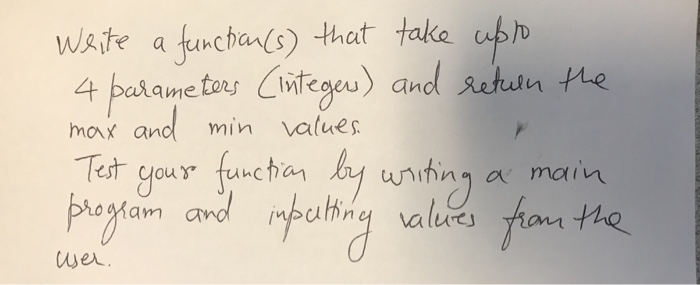 Write a function(s) that take upto
4 parameters (integers) and return the
max and min values.
Test your function by writing a main
program and inputting values from the
user.